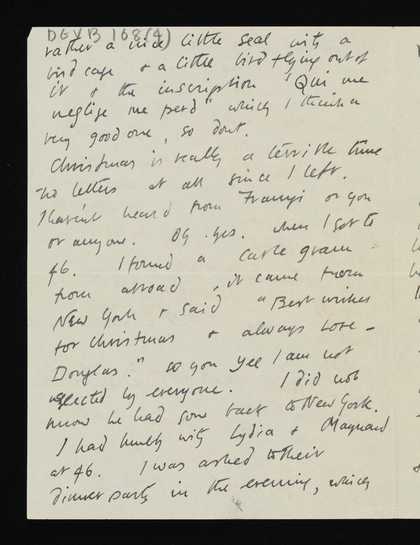 DGVB 168(4)
rather a nice little seal with a
bird cage & a little bird flying out of
it & the inscription "Qui me
neglige me perd" which I think a
very good one, so dont.
Christmas is really a terrible time
no letters at all since I left.
I haven't heard from or you
or anyone. Oh yes. when I got to
46. I found a cable gram
from abroad, it came from
New York & said "Best wishes
for Christmas & always love –
Douglas." so you see I am not
neglected by everyone. I did not
know he had gone back to New York.
I had lunch with Lydia & Maynard
at 46. I was asked to their
dinner party in the evening, which